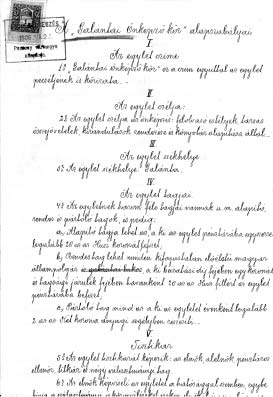 A „Galántai Önképző kör” alapszabályai
I
Az egylet cime
1§ „Galántai önképző kör” és a cím egyuttal az egylet
pecsétjének is körirata.
II
Az egylet célja:
2§ Az egylet célja az önképzés: felolvasó estélyek, házias
összejövetelek, kirándulások rendezése és könyvtár alapítása által.
III
Az egylet székhelye
3§ Az egylet székhelye: Galánta.
IV
Az egylet tagjai
4§ Az egyletnek három féle tagjai vannak u. m. alapító,
rendes és pártoló tagok, és pedig:
a, Alapító tagja lehet az, a ki az egylet pénztárába egyszerre
legalább 20 azaz Husz koronát fizet,
b, Rendes tag lehet minden kifogástalan előéletű magyar
állampolgár a ki beiratási díj fejében egy koronát
és havonkénti járulék fejében havonként 20 azaz Husz fillért az egylet
pénztárába befizet,
c, Pártoló tag mind az a ki az egyletet évenként legalább
2 azaz Két korona anyagi segélyben
V
Tisztikar
5§ Az egylet tisztikarát képezik: az elnök, alelnök, pénztáros
ellenőr, titkár és négy választmányi tag
6§ Az elnök képviseli az egyletet a hatósággal szemben, egybe